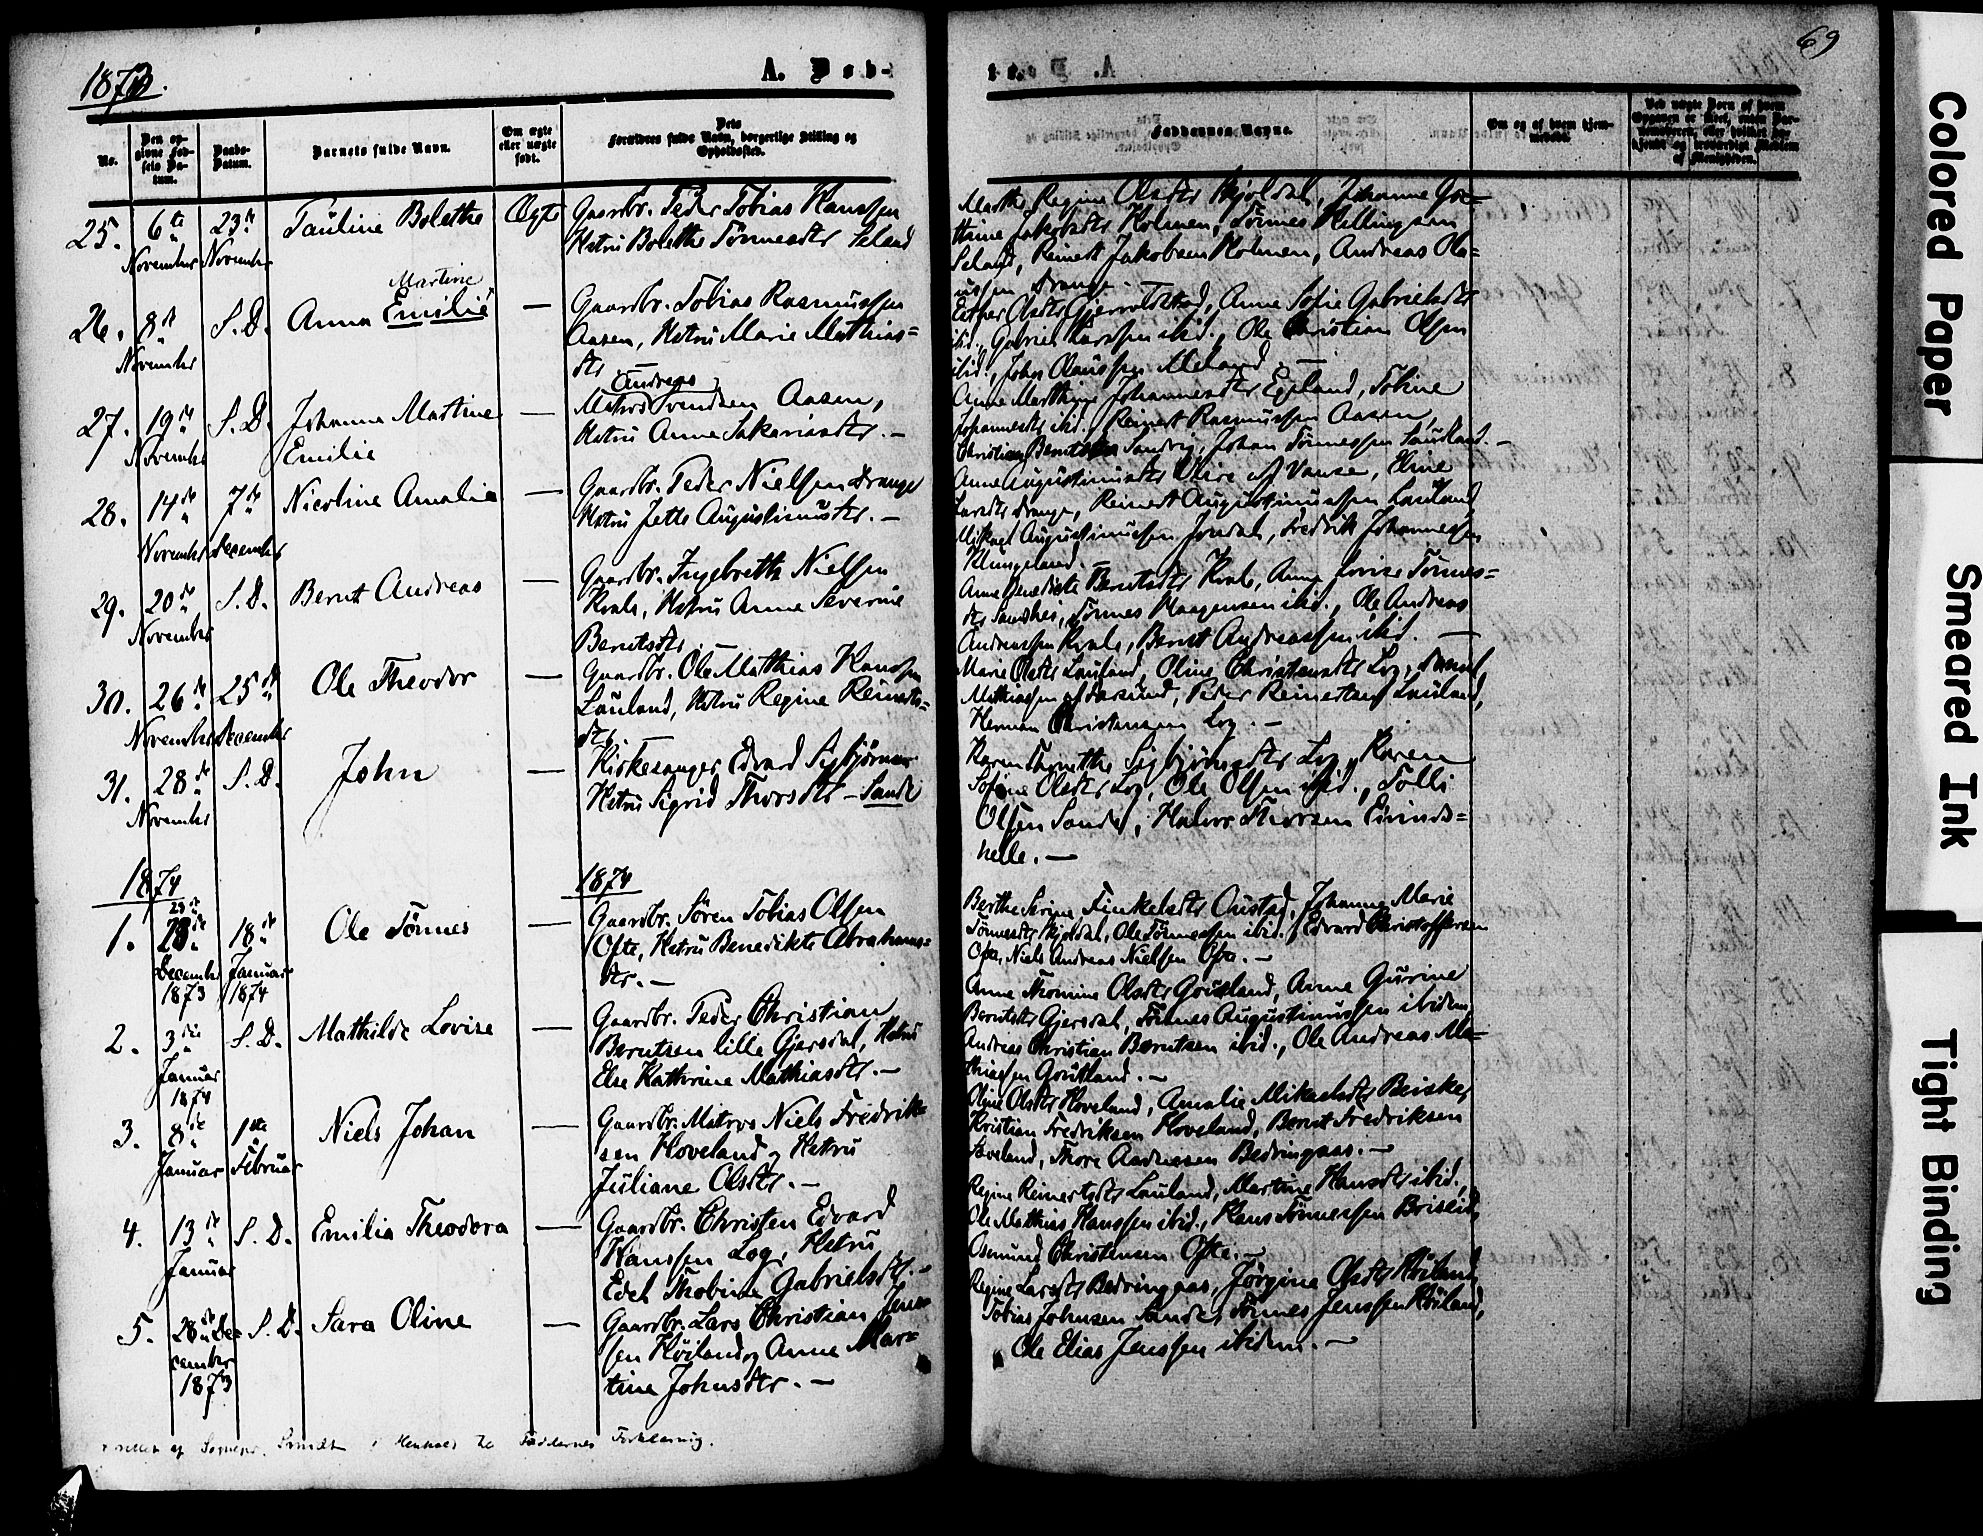 1873.
A. Døb-
69
No.
Den op-
givne Fød-
sels Da-
tum.
Daabs-
Datum.
Barnets fulde Navn.
Om ægte
eller uægte
født.
Dets
Forældres fulde Navn, borgerlige Stilling og
Opholdssted.
Faddernes Navne.
Om og af hvem hjem-
medøbt.
25. 6te November 23de November Pauline Bolethe Ægte
Gaardbr. Peder Tobias Hanssen
Hstru Bolethe Tønnesdtr Seland
Marthe Regine Olsdtr Kjoldal, Johanne Gre-
thine Jakobsdtr Holmen, Tønnes Hellingsen
Seland, Reinert Jakobsen Holmen, Andreas Ola-
ussen Drange. —
26. 8de November S. D. Anna Emilie
Martine
—
Gaardbr. Tobias Rasmussen
Aasen, Hstru Marie Mathias-
dtr
Esther Olsdtr Gjervoldstad, Anne Sofie Gabrielsdtr
ibid., Gabriel Larssen ibid., Ole Christian Olsen
ibid., John Olaussen Meland —
27. 19de November S. D. Johanna Martine
Emilie
—
Andreas
Matros Svendsen Aasen,
Hstru Anne Sakariasdtr. —
Anne Marthine Johannesdtr Egeland, Tobine
Johannesdtr ibid., Reinert Rasmussen Aasen,
Christian Berntsen Sandvig, Johan Tønnessen Lauland. —
28. 14de November 7de December Nicoline Amalie —
Gaardbr. Peder Nielssen Drange
Hstru Jette Augustinusdtr. —
Anne Augustinusdtr Ulice af Vanse, Eline
Larsdtr Drange, Reinert Augustinussen Lauland
Mikael Augustinussen Jondal, Fredrik Johannessen
Klungeland. —
29. 20de November S. D. Bernt Andreas —
Gaardbr. Ingebreth Nielssen
Kvale, Hstru Anne Severine
Berntsdtr —
Anne Benedicte Berntsdtr Kvale, Anne Lovise Tønnes-
dtr Sandhei, Tønnes Haagensen ibid., Ole Andreas
Andreassen Kvale, Bernt Andreassen ibid. —
30. 26de November 25de December Ole Theodor —
Gaardbr. Ole Mathias Hanssen
Lauland, Hstru Regine Reinerts-
dtr.
Marie Olsdtr Lauland, Oline Christensdtr Log, Daniel
Mathiassen af Farsund, Peder Reinertsen Lauland,
Herman Christensen Log. —
31. 28de November S. D. John —
Kirkesanger Edvard Sigbjørnsen
Hstru Sigrid Thorsdtr — Sande
Karen Thornethe Sigbjørnsdtr Log, Karen
Sofine Olsdtr Log, Ole Olsen ibid., Tolli
Olsen Sande, Halvor Thorsen Eivinds-
helle. —
1874
1874
1. 28de
25de
December
1873
18de
Januar
1874
Ole Tønnes —
Gaardbr. Søren Tobias Olsen
Ofte, Hstru Benedikte Abrahams-
dtr. —
Berthe Serine Finkelsdtr Oustad, Johanne Marie
Tønnesdtr Kjoldal, Ole Tønnessen ibid., Edvard Christoffersen
Ofte, Niels Andreas Nielssen Ofte. —
2. 3die
Januar
1874
S. D. Mathilde Lovise —
Gaardbr. Peder Christian
Berntsen lille Gjersdal, Hstru
Else Kathrine Mathiasdtr. —
Anne Thomine Olsdtr Goutland, Anne Gurine
Berntsdtr Gjersdal, Tønnes Augustinussen ibidem,
Andreas Christian Berntsen ibid., Ole Andreas Ma-
thiassen Goutland. —
3. 8de Januar 1ste Februar Niels Johan —
Gaardbr. Matros Niels Fredrik-
sen Hoveland, Hstru
Juliane Olsdtr. —
Oline Olsdtr Hoveland, Amalie Mikaelsdtr Briseid,
Kristian Fredriksen Hoveland, Bernt Fredriksen
Hoveland, Thore Aadnesen Bedringaas. —
4. 13de Januar S. D. Emilie Theodora —
Gaardbr. Christen Edvard
Hanssen Log, Hstru
Edel Thobine Gabrielsdtr. —
Regine Reinertsdtr Lauland, Martine Hansdtr ibid.,
Ole Mathias Hanssen ibid., Hans Tønnessen Briseid,
Osmund Christensen Ofte. —
5. 28de De-
cember
1873
S. D. Sara Oline —
Gaardbr. Lars Christian Jens-
sen Høiland, Anne Mar-
tine Johnsdtr. —
Regine Larsdtr Bedringaas, Jørgine Olsdtr Høiland,
Tobias Johnsen Sande, Tønnes Jenssen Høiland,
Ole Elias Jenssen ibidem. —
rettet af Sognepr. Smidth i Henhold til Faddernes Forklaring.
Colored Paper
Smeared Ink
Tight Binding